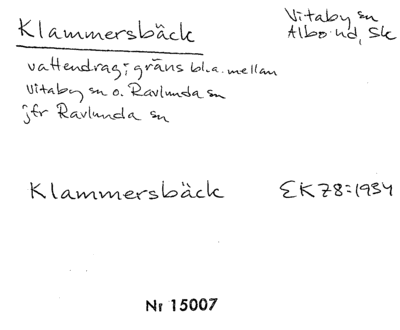 Klammersbäck
Vitaby sn
Albo hd, Sk
vattendrag; gräns bl.a. mellan
Vitaby sn o. Ravlunda sn
jfr Ravlunda sn
Klammersbäck EK 78:1934
Nr 15007